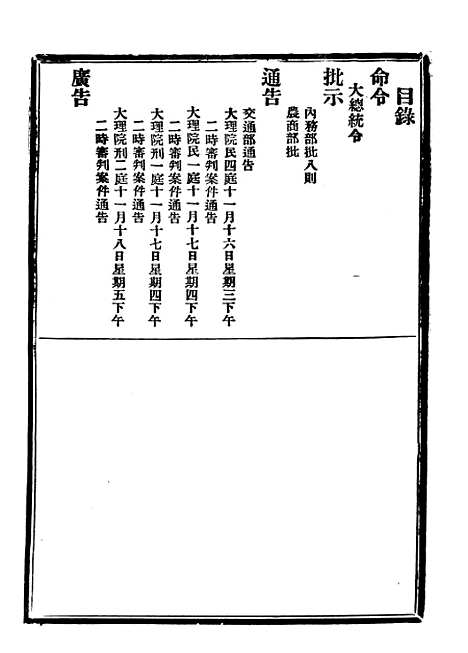 目錄
命令
大總統令
批示
內務部批八則
農商部批
通告
交通部通告
大理院民四庭十一月十六日星期三下午
二時審判案件通告
大理院民一庭十一月十七日星期四下午
二時審判案件通告
大理院刑一庭十一月十七日星期四下午
二時審判案件通告
大理院刑二庭十一月十八日星期五下午
二時審判案件通告
廣告